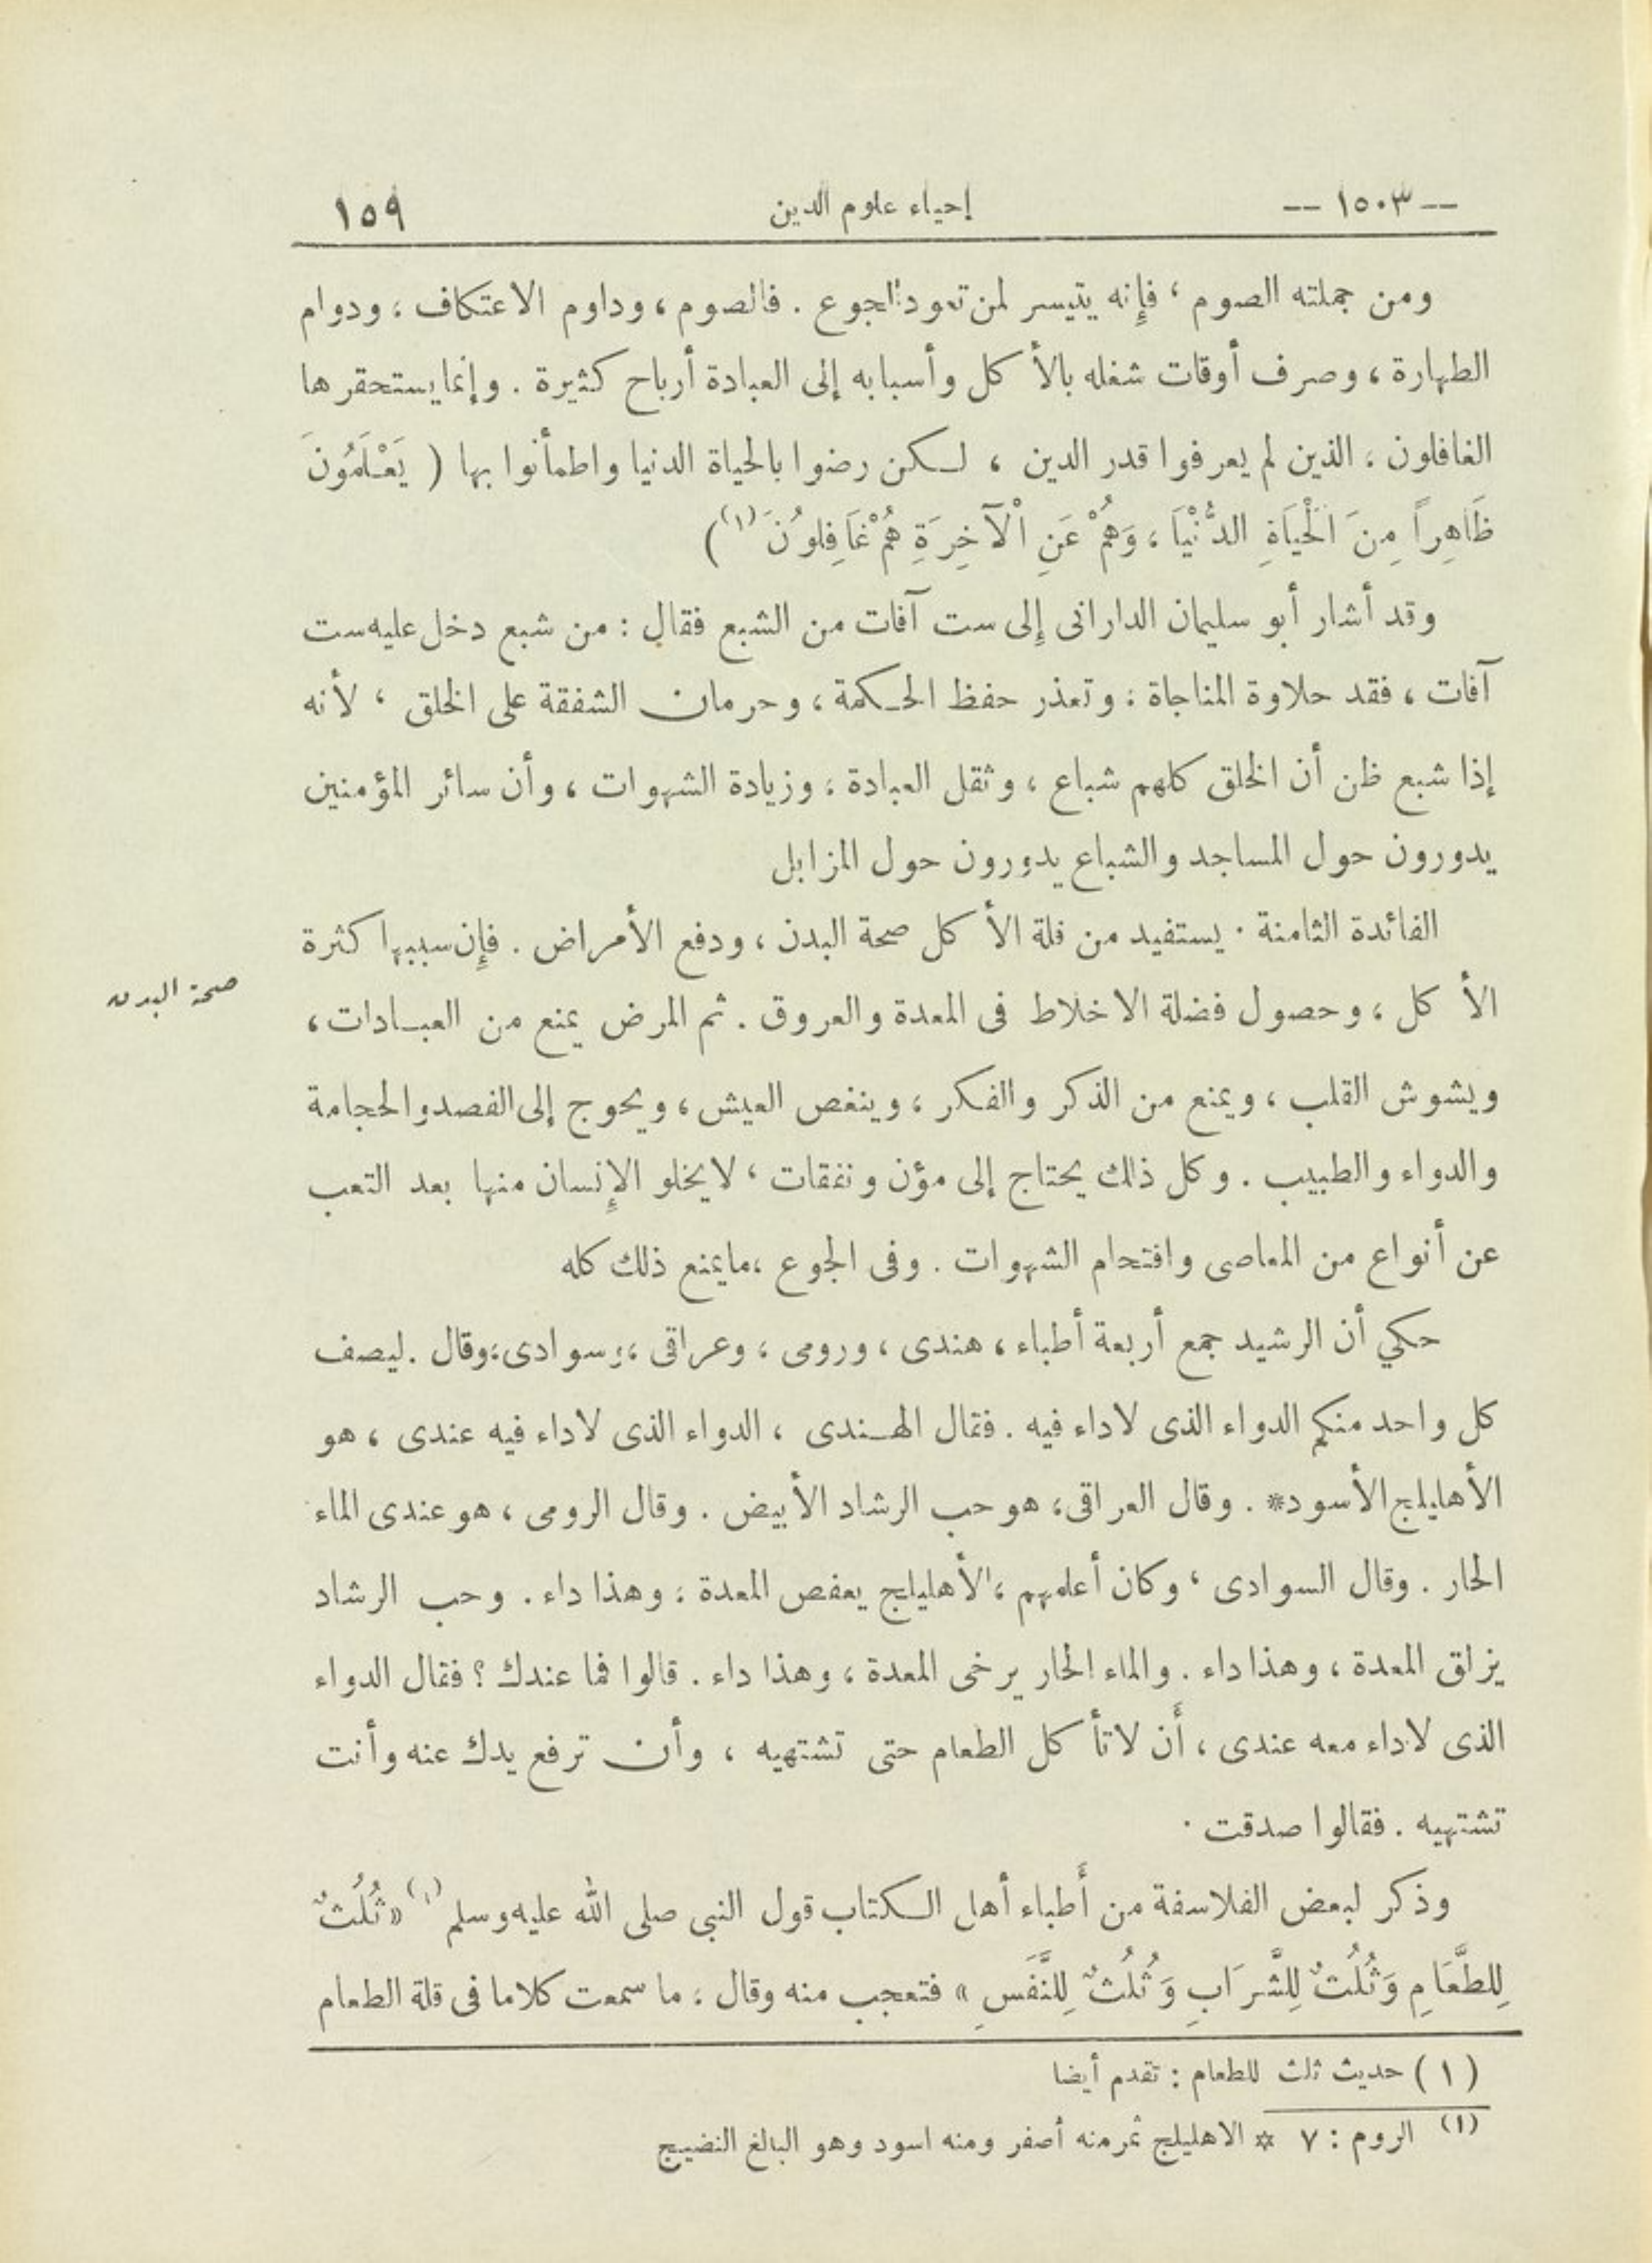 — ١٥٠٣ — إحياء علوم الدين ١٥٩
ومن جملته الصوم ، فإنه يتيسر لمن تعود الجوع . فالصوم ، وداوم الاعتكاف ، ودوام
الطهارة ، وصرف أوقات شغله بالأكل وأسبابه إلى العبادة أرباح كثيرة . وإنما يستحقرها
الغافلون ، الذين لم يعرفوا قدر الدين ، لكن رضوا بالحياة الدنيا واطمأنوا بها ( يَعْلَمُونَ
ظَاهِراً مِنَ الْحَيَاةِ الدُّنْيَا ، وَهُمْ عَنِ الْآخِرَةِ هُمْ غَافِلُونَ (١) )
وقد أشار أبو سليمان الدارانى إلى ست آفات من الشبع فقال : من شبع دخل عليه ست
آفات ، فقد حلاوة المناجاة ، وتعذر حفظ الحكمة ، وحرمان الشفقة على الخلق ، لأنه
إذا شبع ظن أن الخلق كلهم شباع ، وثقل العبادة ، وزيادة الشهوات ، وأن سائر المؤمنين
يدورون حول المساجد والشباع يدورون حول المزابل
الفائدة الثامنة . يستفيد من قلة الأكل صحة البدن ، ودفع الأمراض . فإن سببها كثرة
صحة البدن
الأكل ، وحصول فضلة الاخلاط فى المعدة والعروق . ثم المرض يمنع من العبادات ،
ويشوش القلب ، ويمنع من الذكر والفكر ، وينغص العيش ، ويحوج إلى الفصد والحجامة
والدواء والطبيب . وكل ذلك يحتاج إلى مؤن ونفقات ، لايخلو الإنسان منها بعد التعب
عن أنواع من المعاصى واقتحام الشهوات . وفى الجوع ، مايمنع ذلك كله
حكي أن الرشيد جمع أربعة أطباء ، هندى ، ورومى ، وعراقى ، وسوادى ، وقال . ليصف
كل واحد منكم الدواء الذى لاداء فيه . فقال الهندى ، الدواء الذى لاداء فيه عندى ، هو
الأهليلج الأسود* . وقال العراقى ، هو حب الرشاد الأبيض . وقال الرومى ، هو عندى الماء
الحار . وقال السوادى ، وكان أعلمهم ، الأهليلج يعفص المعدة ، وهذا داء . وحب الرشاد
يزلق المعدة ، وهذا داء . والماء الحار يرخى المعدة ، وهذا داء . قالوا فما عندك ؟ فقال الدواء
الذى لاداء معه عندى ، أن لاتأكل الطعام حتى تشتهيه ، وأن ترفع يدك عنه وأنت
تشتهيه . فقالوا صدقت .
وذكر لبعض الفلاسفة من أطباء أهل الكتاب قول النبى صلى الله عليه وسلم (١) « ثُلُثٌ
لِلطَّعَامِ وَثُلُثٌ لِلشَّرَابِ وَثُلُثٌ لِلنَّفَسِ » فتعجب منه وقال ، ما سمعت كلاما فى قلة الطعام
( ١ ) حديث ثلث للطعام : تقدم أيضا
(١) الروم : ٧ * الاهليلج ثمر منه أصفر ومنه اسود وهو البالغ النضيج